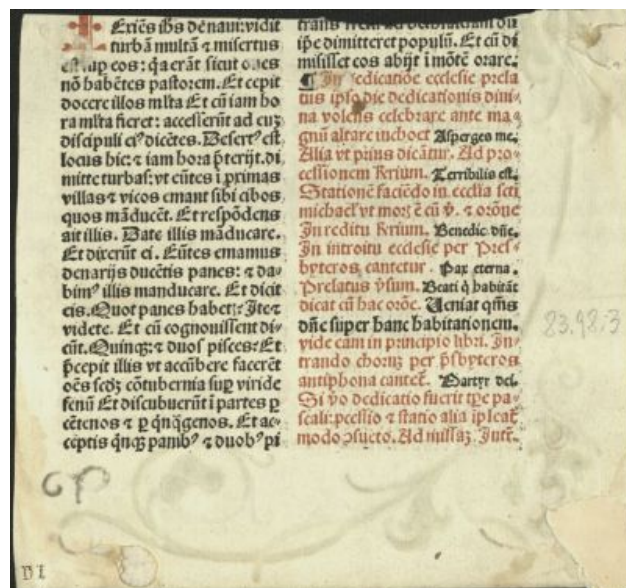 Exiēs ihs de naui: vidit
turbā multā ⁊ misertus
est sup eos: q̄a erāt sicut oues
nō habētes pastorem. Et cepit
docere illos mlta Et cū iam ho
ra mlta fieret: accesserūt ad euʒ
discipuli eiꝰ dicētes. Desertꝰ est
locus hic: ⁊ iam hora p̄terijt. di
mitte turbas: vt eūtes ī primas
villas ⁊ vicos emant sibi cibos
quos māducēt. Et respōdens
ait illis. Date illis māducare.
Et dixerūt ei. Eūtes emamus
denarijs ducētis panes: ⁊ da-
bimꝰ illis manducare. Et dicit
eis. Quot panes habet? Ite ⁊
videte. Et cū cognouissent di-
cūt. Quinqʒ: ⁊ duos pisces: Et
p̄cepit illis vt accūbere facerēt
oēs scdʒ cōtubernia suꝑ viride
fenū Et discubuerūt ī partes ꝑ
cētenos ⁊ ꝑ qnq̄genos. Et ac-
ceptis qnqʒ panibꝰ ⁊ duobꝰ pi
trans fretū ad
ip̄e dimitteret populū. Et cū di
misisset eos abijt ī mōtē orare.
¶ In dedicatiōe ecclesie prela
tus ipso die dedicationis diui-
na volens celebrare ante ma-
gnū altare inchoet Asperges me.
Alia vt prius dicātur. Ad pro-
cessionem Rerium. Terribilis est.
Stationē faciēdo in ecclīa scti
michael' vt mor̄ ē cū v̄. ⁊ orōne
In reditu Rerium. Benedic dn̄e.
In introitu ecclesie per Pres-
byteros cantetur. Pax eterna.
Prelatus v̄sum. Beati q̄ habitāt
dicat cū hac orōe. Ueniat qm̄s
dn̄e super hanc habitationem.
vide eam in principio libri. In-
trando chorum per p̄sbyteros
antiphona cantet. Martyr dei.
Si v̄o dedicatio fuerit tp̄e pa-
scali: ꝓcessio ⁊ statio alia īpleat
modo ꝯsueto. Ad missaʒ Intr̄.
23.98.3
DI